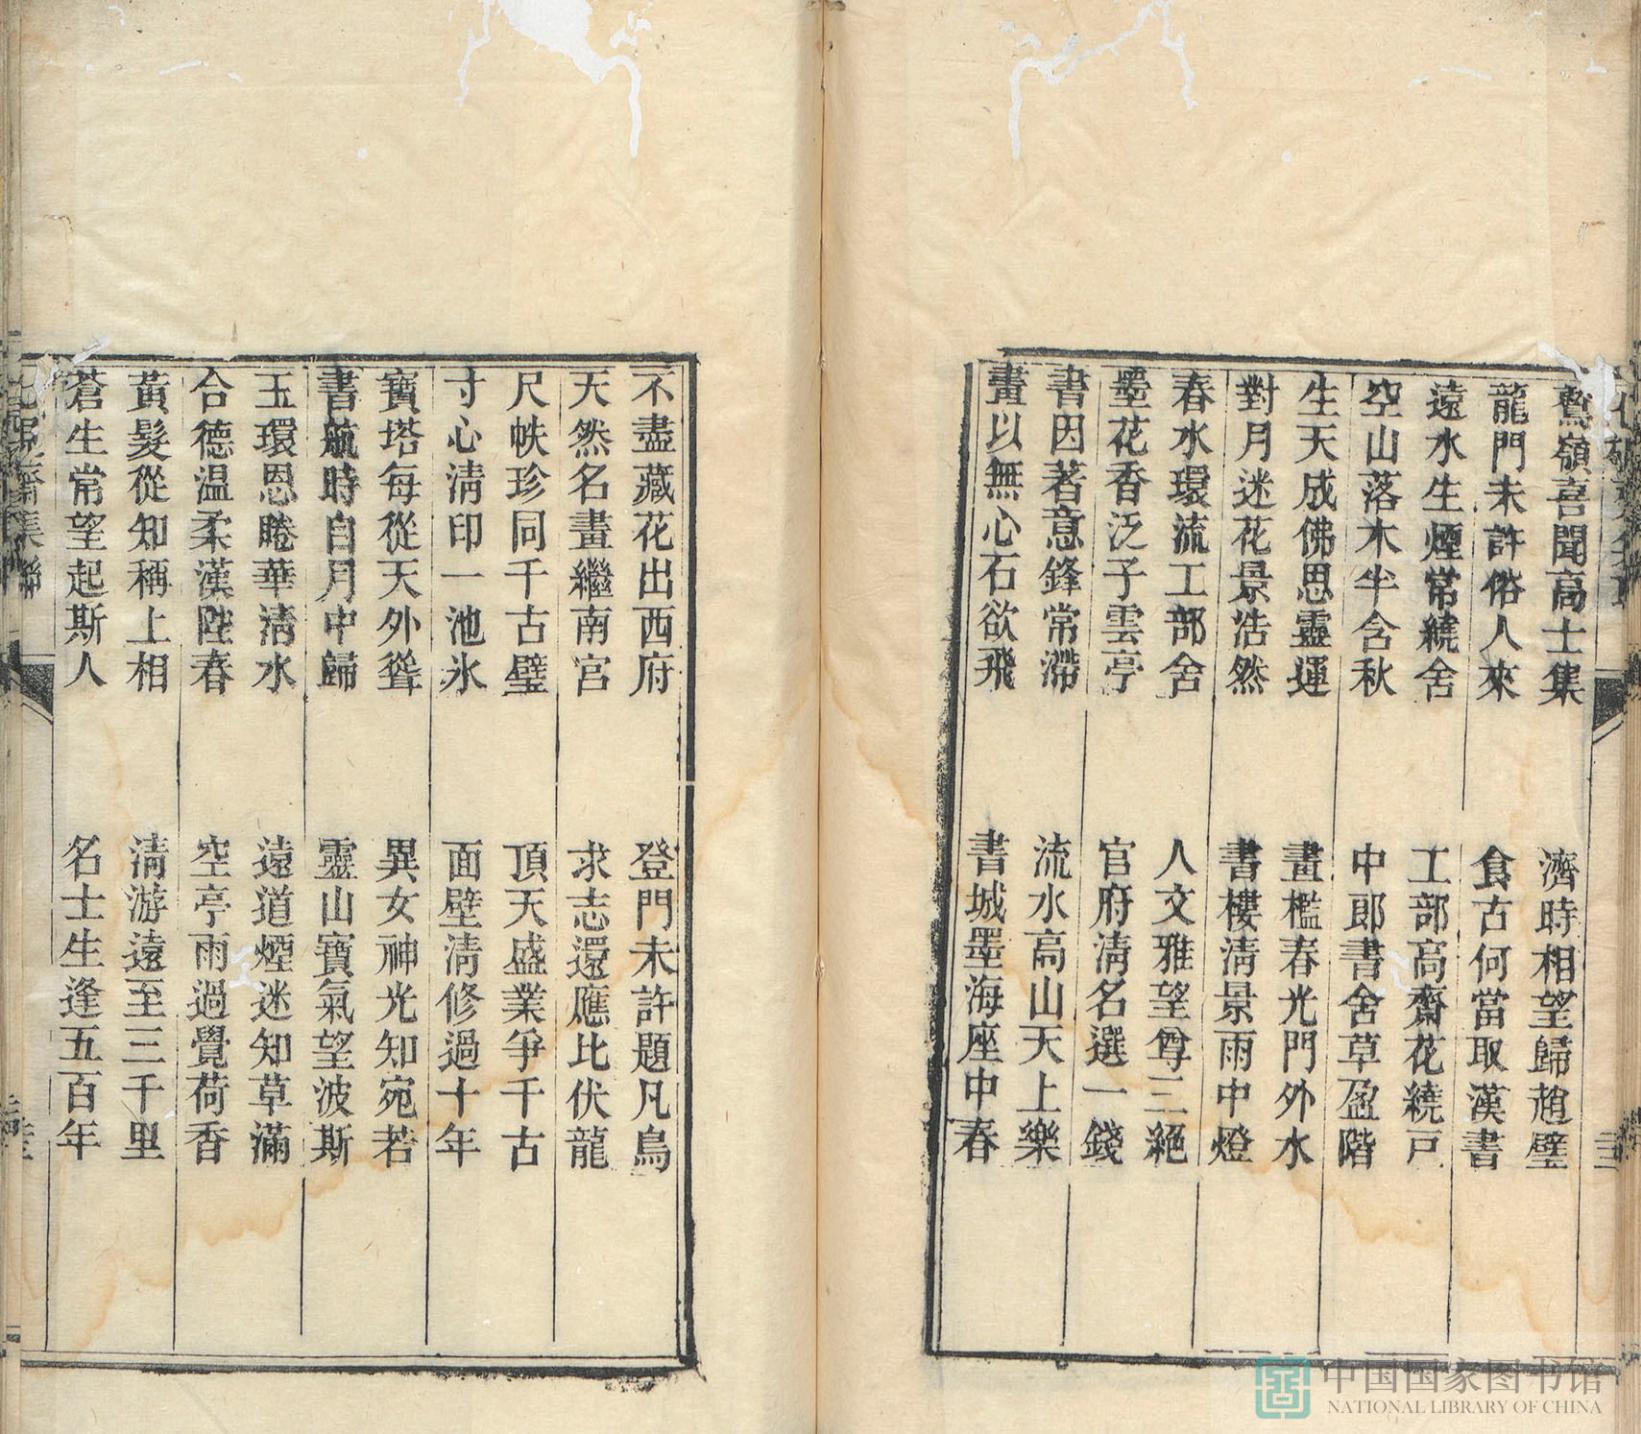 鷲嶺喜聞高士集　濟時相望歸趙璧
龍門未許俗人來　食古何當取漢書
遠水生煙常繞舍　工部高齋花繞戸
空山落木半含秋　中郎書舍草盈階
生天成佛思靈運　畫檻春光門外水
對月迷花景浩然　書樓淸景雨中燈
春水環流工部舍　人文雅望尊三絕
墨花香泛子雲亭　官府淸名選一錢
書因著意鋒常滯　流水高山天上樂
畫以無心石欲飛　書城墨海座中春
不盡藏花出西府　登門未許題凡鳥
天然名畫繼南宮　求志還應比伏龍
尺帙珍同千古璧　頂天盛業爭千古
寸心淸印一池氷　面壁淸修過十年
寶塔每從天外聳　異女神光知宛若
書航時自月中歸　靈山寶氣望波斯
玉環恩睠華淸水　遠道煙迷知草滿
合德温柔漢陛春　空亭雨過覺荷香
黃髮從知稱上相　淸游遠至三千里
蒼生常望起斯人　名士生逢五百年
中国国家图书馆
NATIONAL LIBRARY OF CHINA